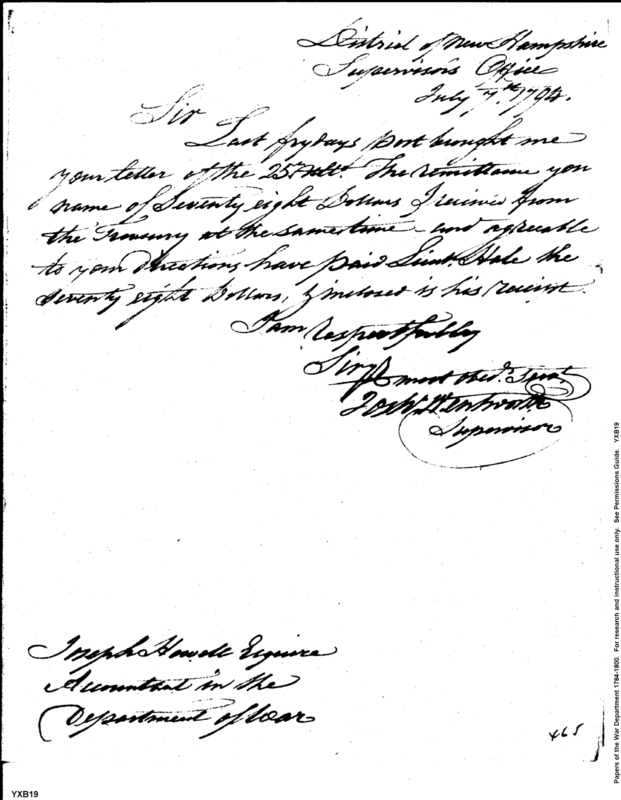 District of New Hampshire
Supervisor's Office
July 7th. 1794.
Sir
Last frydays post brought me
your letter of the 25th. ulto. The remittance you
name of Seventy eight Dollars I receive from
the Treasury at the same time and agreeable
to your directions have paid Lieut. Hale the
seventy eight Dollars, & inclosed is his receipt.
I am respectfully
Sir, yr. most obed. Servt.
Joshu. Wentworth
Supervisor
Joseph Howell Esquire
Accountant in the
Department of War
465
YXB19
Papers of the War Department 1784-1800. For research and instructional use only. See Permissions Guide. YXB19